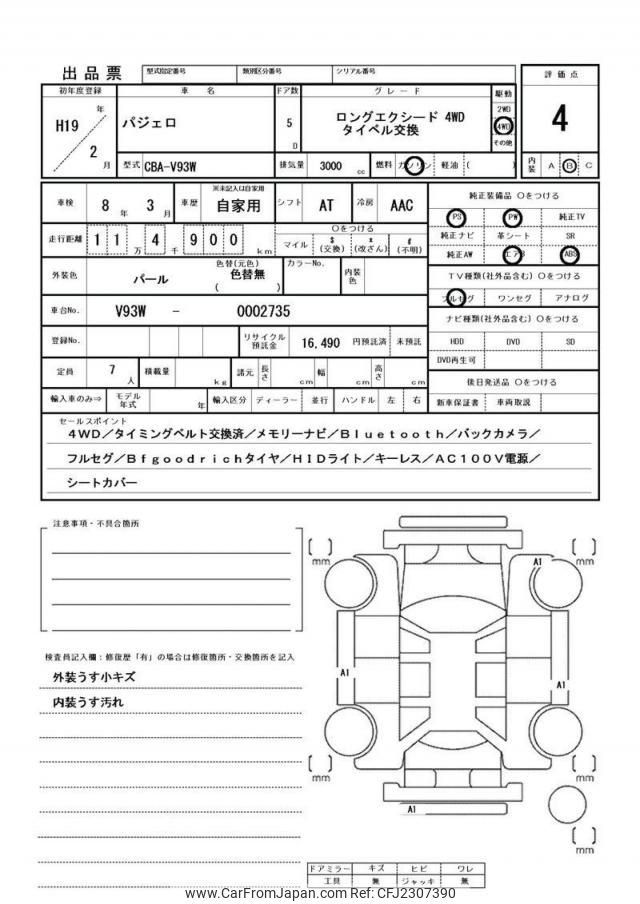 出品票 型式指定番号 類別区分番号 シリアル番号
初年度登録 車名 ドア数 グレード 駆動 評価点
H19 年 2 月 パジェロ 5 D ロングエクシード 4WD タイベル交換 2WD 4WD その他 4
型式 CBA-V93W 排気量 3000 cc 燃料 ガソリン 軽油 ( ) 内装 A B C
車検 8 年 3 月 車歴 ※未記入は自家用 自家用 シフト AT 冷房 AAC
純正装備品 Oをつける
PS PW 純正TV
走行距離 1 1 万 4 千 9 0 0 km Oをつける マイル $(交換) x(改ざん) #(不明)
純正ナビ 革シート SR
純正AW エアB ABS
外装色 パール 色替(元色) 色替無 ( ) カラーNo. 内装色
TV種類(社外品含む) Oをつける
フルセグ ワンセグ アナログ
車台No. V93W - 0002735
ナビ種類(社外品含む) Oをつける
登録No. リサイクル預託金 16,490 円預託済 未預託
HDD DVD SD
DVD再生可
定員 7 人 積載量 kg 諸元 長さ cm 幅 cm 高さ cm
後日発送品 Oをつける
輸入車のみ⇒ モデル年式 年 輸入区分 ディーラー 並行 ハンドル 左 右
新車保証書 車両取説
セールスポイント
4WD／タイミングベルト交換済／メモリーナビ／Bluetooth／バックカメラ／
フルセグ／Bfgoodrichタイヤ／HIDライト／キーレス／AC100V電源／
シートカバー
注意事項・不具合箇所
検査員記入欄：修復歴「有」の場合は修復箇所・交換箇所を記入
外装うす小キズ
内装うす汚れ
[ ] mm
[ ] mm
A1
A1
A1
[ ] mm
[ ] mm
A1
[ ] mm
ドアミラー キズ ヒビ ワレ
工具 無 ジャッキ 無
www.CarFromJapan.com CFJ2307390